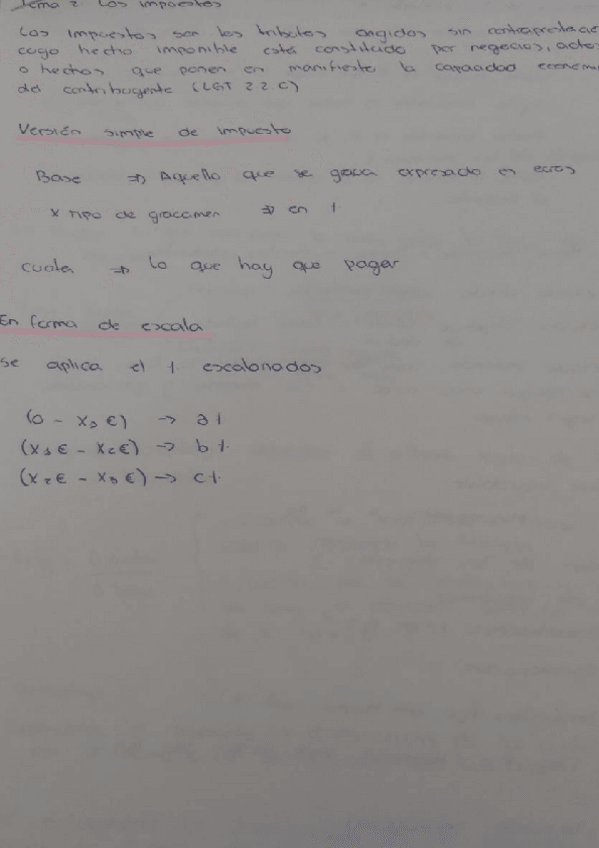 Tema 2: Los impuestos
Los impuestos son los tributos exigidos sin contraprestación
cuyo hecho imponible está constituido por negocios, actos
o hechos que ponen en manifiesto la capacidad económ
del contribuyente (LGT 2.2.c)
Versión simple de impuesto
Base => Aquello que se grava expresado en euros
x tipo de gravamen => en %
cuota => Lo que hay que pagar
En forma de escala
se aplica el % escalonados
(0 - x₁ €) -> a %
(x₁ € - x₂ €) -> b %
(x₂ € - x₃ €) -> c %